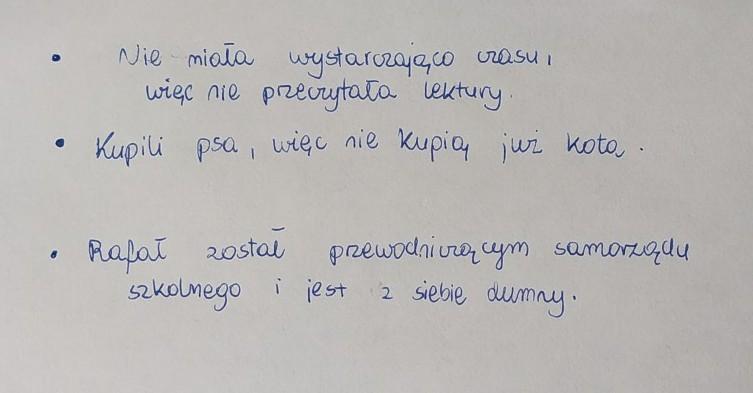 • Nie miała wystarczająco czasu,
więc nie przeczytała lektury.
• Kupili psa, więc nie kupią już kota.
• Rafał został przewodniczącym samorządu
szkolnego i jest z siebie dumny.